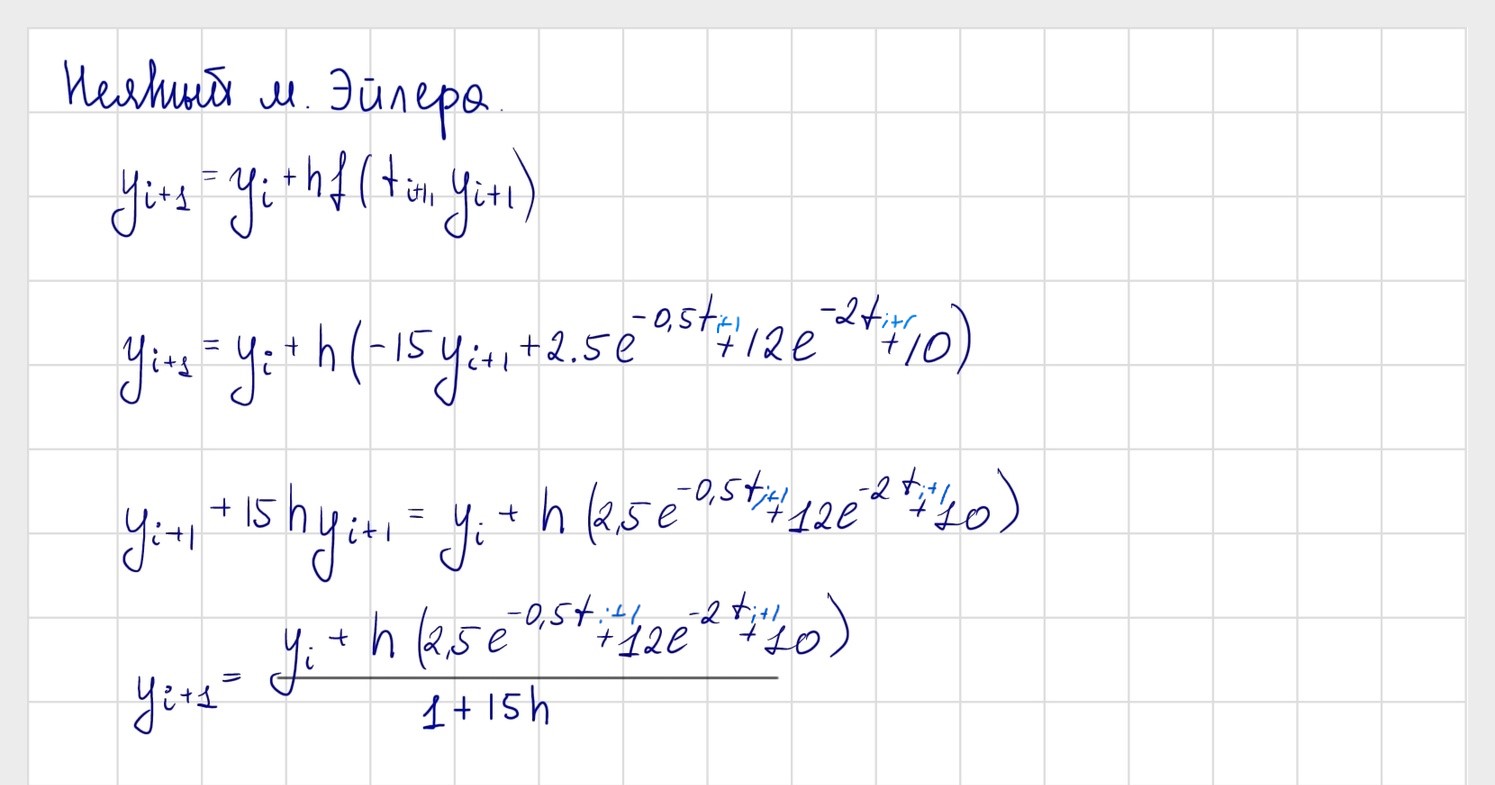 Неявный м. Эйлера.
y_{i+1} = y_i + h f(t_{i+1}, y_{i+1})
y_{i+1} = y_i + h(-15y_{i+1} + 2.5e^{-0,5t_{i+1}} + 12e^{-2t_{i+1}} + 10)
y_{i+1} + 15hy_{i+1} = y_i + h(2,5e^{-0,5t_{i+1}} + 12e^{-2t_{i+1}} + 10)
y_{i+1} = \frac{y_i + h(2,5e^{-0,5t_{i+1}} + 12e^{-2t_{i+1}} + 10)}{1 + 15h}